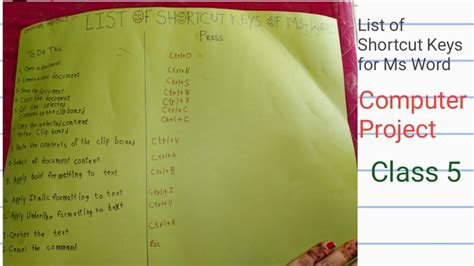 LIST OF SHORTCUT KEYS OF MS-WORD
To Do This
PRESS
Open a document
Ctrl+O
document
Ctrl+N
the document
Ctrl+S
the document
Ctrl+W
the selected
Ctrl+X
content to the clip board
Ctrl+C
the selected content
to the clip board
Paste the contents of the clip board
Ctrl+V
Select all document content
Ctrl+A
Apply bold formatting to text
Ctrl+B
Apply Italic formatting to text
Ctrl+I
Apply Underline formatting to text
Ctrl+U
Center the text
Ctrl+E
Cancel the command
Esc
List of
Shortcut Keys
for Ms Word
Computer
Project
Class 5